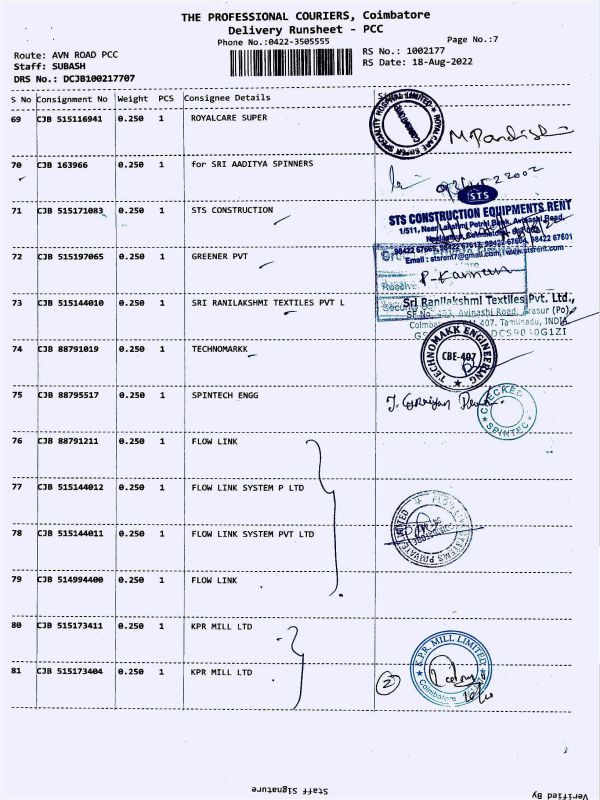 THE PROFESSIONAL COURIERS, Coimbatore
Delivery Runsheet - PCC
Phone No.:0422-3505555
Page No.:7
Route: AVN ROAD PCC
RS No.: 1002177
Staff: SUBASH
RS Date: 18-Aug-2022
DRS No.: DCJB100217707
S No Consignment No Weight PCS Consignee Details
69 CJB 515116941 0.250 1 ROYALCARE SUPER
ROYALCARE SUPER SPECIALITY HOSPITAL LIMITED
70 CJB 163966 0.250 1 for SRI AADITYA SPINNERS
STS
71 CJB 515171083 0.250 1 STS CONSTRUCTION
STS CONSTRUCTION EQUIPMENTS RENT
1/511, Near Lakshmi Petrol Bank, Avinashi Road,
98422 67601
Email : stsrent7@gmail.com,
72 CJB 515197065 0.250 1 GREENER PVT
P-Kannan
73 CJB 515144010 0.250 1 SRI RANILAKSHMI TEXTILES PVT L
Sri Ranilakshmi Textiles Pvt. Ltd.,
SF No. 403, Avinashi Road, Arasur (Po),
407. Tamilnadu, INDIA
74 CJB 88791019 0.250 1 TECHNOMARKK
TECHNOMAKK ENGINEERING
CBE-407
75 CJB 88795517 0.250 1 SPINTECH ENGG
CHECKED
SPINTEC
76 CJB 88791211 0.250 1 FLOW LINK
77 CJB 515144012 0.250 1 FLOW LINK SYSTEM P LTD
78 CJB 515144011 0.250 1 FLOW LINK SYSTEM PVT LTD
FLOW LINK SYSTEMS PRIVATE LIMITED
79 CJB 514994400 0.250 1 FLOW LINK
80 CJB 515173411 0.250 1 KPR MILL LTD
81 CJB 515173404 0.250 1 KPR MILL LTD
2
K.P.R. MILL LIMITED
Coimbatore
Staff Signature
Verified By